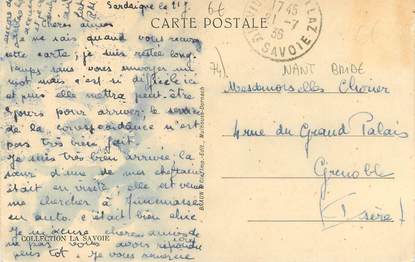 Sardaigne le 21/7
6€
CARTE POSTALE
Chères amies
Je ne sais quand vous recevrez
cette carte; je suis restée long-
temps sans vous envoyer un
mot mais c'est si difficile ici
et puis elle mettra peut-être
jours pour arriver: le service
de la correspondance n'est
pas très bien fait.
Je suis très bien arrivée; la
sœur d'une de ma
était en visite elle est venue
me chercher à
en auto. c'était bien chic
Je m'excuse chères amies de
ne pas vous avoir répondu
plus tôt. Je vous remercie
COLLECTION LA SAVOIE
BRAUN & Cie, Imp.-Edit., Mulhouse-Dornach
1745
21-7
36
SAVOIE
74)
NANT BRIDE
Mesdemoiselles Choner
4 rue du Grand Palais
Grenoble
(Isère)